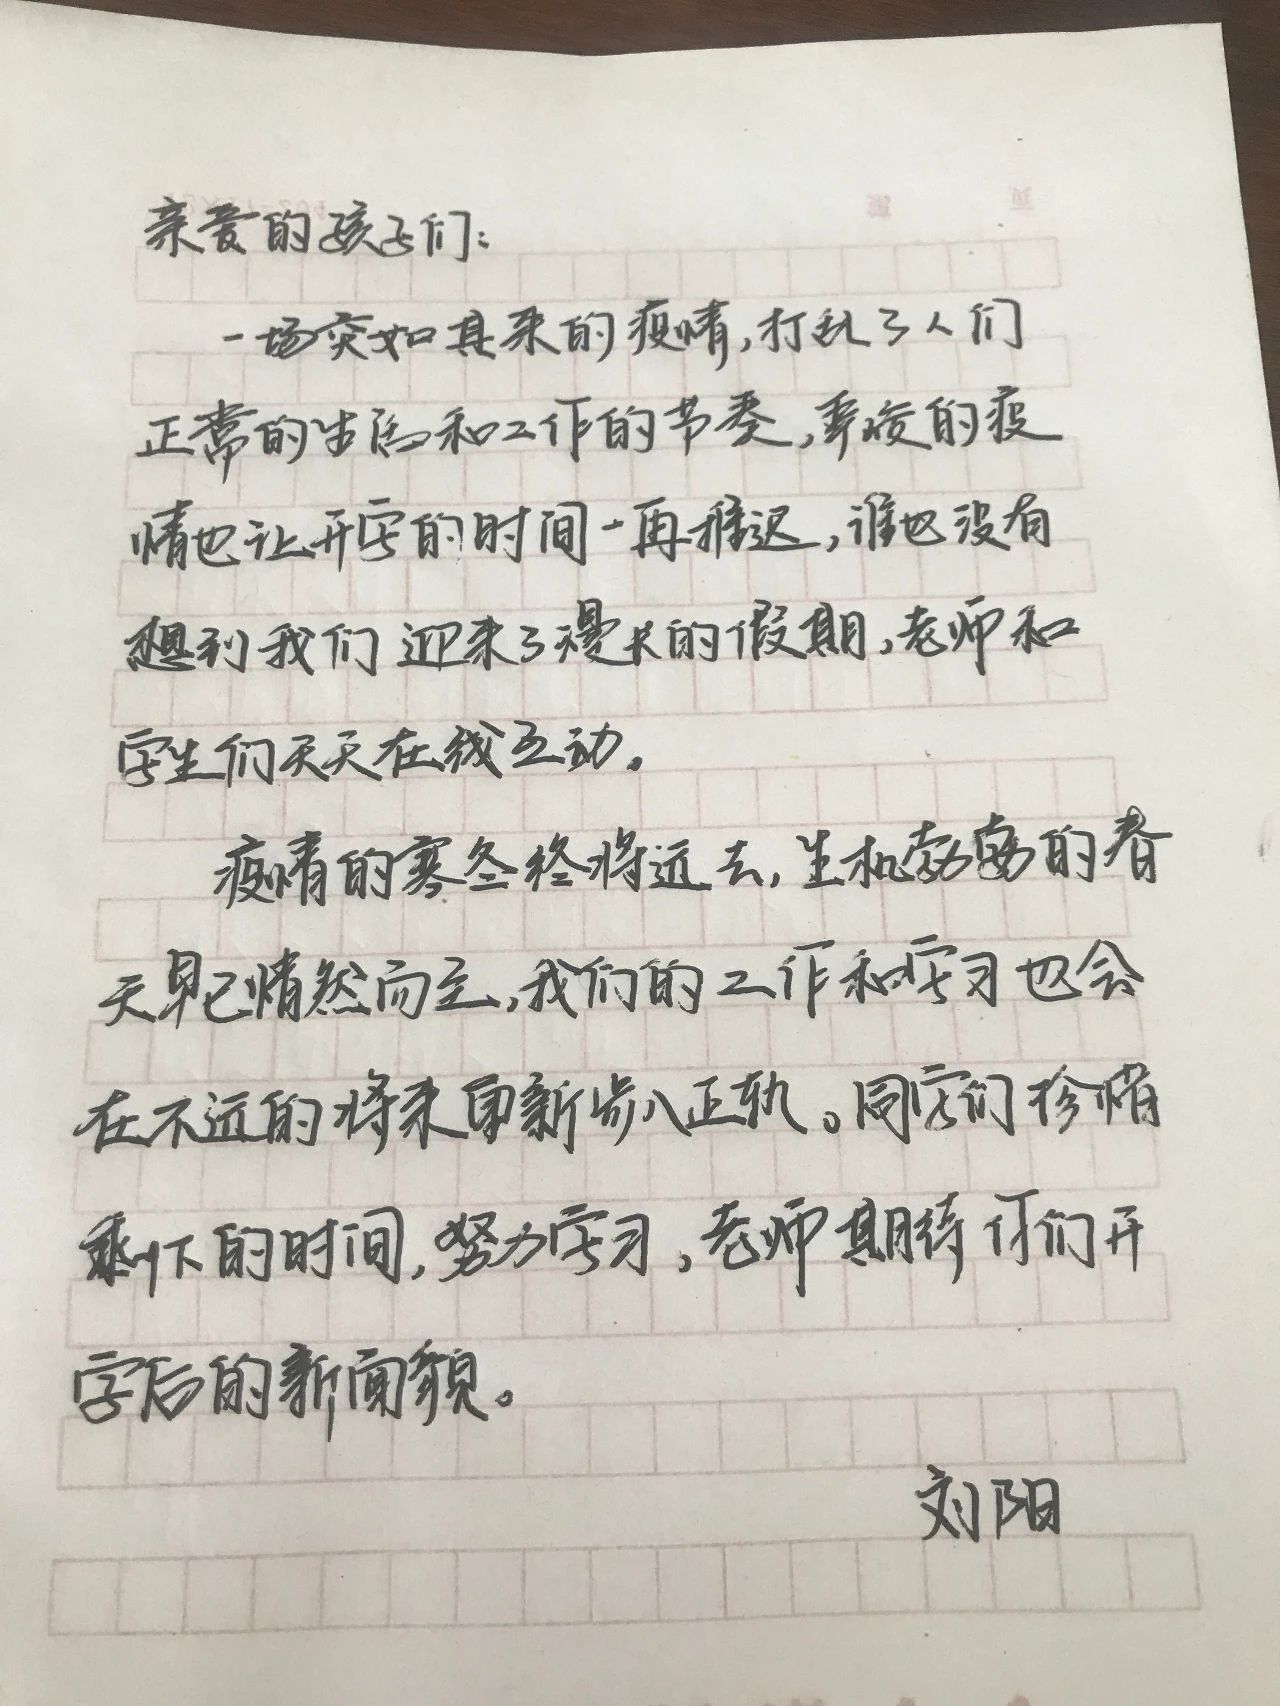 亲爱的孩子们：
一场突如其来的疫情，打乱了人们
正常的生活和工作的节奏，严峻的疫
情也让开学的时间一再推迟，谁也没有
想到我们迎来了漫长的假期，老师和
学生们天天在线互动。
疫情的寒冬终将远去，生机勃勃的春
天早已悄然而至，我们的工作和学习也会
在不远的将来重新步入正轨。同学们珍惜
剩下的时间，努力学习，老师期待你们开
学后的新面貌。
刘阳